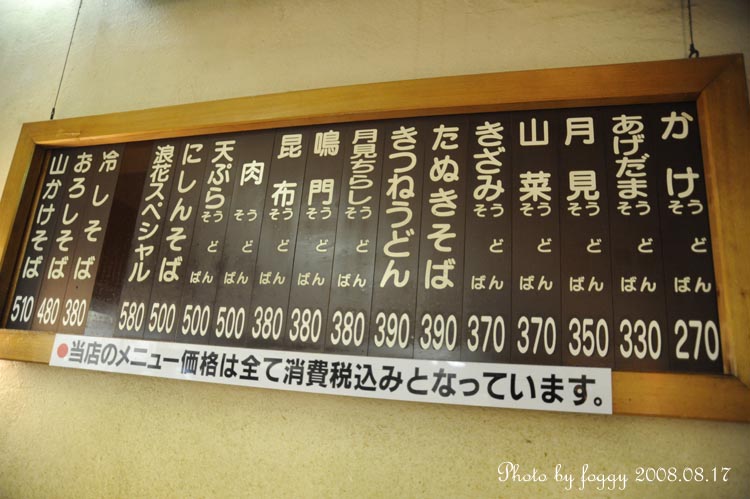 かけ うどん そば 270
あげだま うどん そば 330
月見 うどん そば 350
山菜 うどん そば 370
きざみ うどん そば 370
たぬきそば 390
きつねうどん 390
月見ちらし うどん そば 380
鳴門 うどん そば 380
昆布 うどん そば 380
肉 うどん そば 500
天ぷら うどん そば 500
にしんそば 500
浪花スペシャル 580
冷しそば 380
おろしそば 480
山かけそば 510
●当店のメニュー価格は全て消費税込みとなっています。
Photo by foggy 2008.08.17